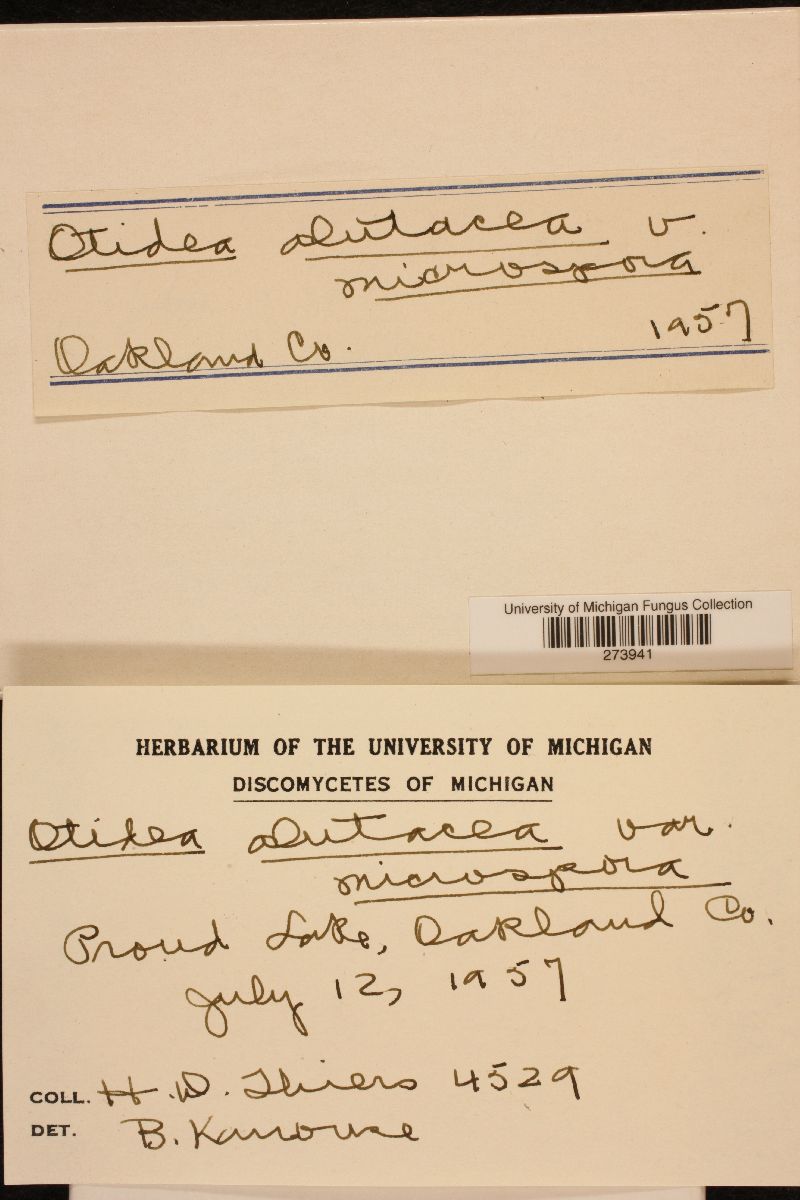 Otidea alutacea v.
microspora
Oakland Co. 1957
University of Michigan Fungus Collection
273941
HERBARIUM OF THE UNIVERSITY OF MICHIGAN
DISCOMYCETES OF MICHIGAN
Otidea alutacea var.
microspora
Proud Lake, Oakland Co.
July 12, 1957
COLL. H.D. Thiers 4529
DET. B. Kanouse